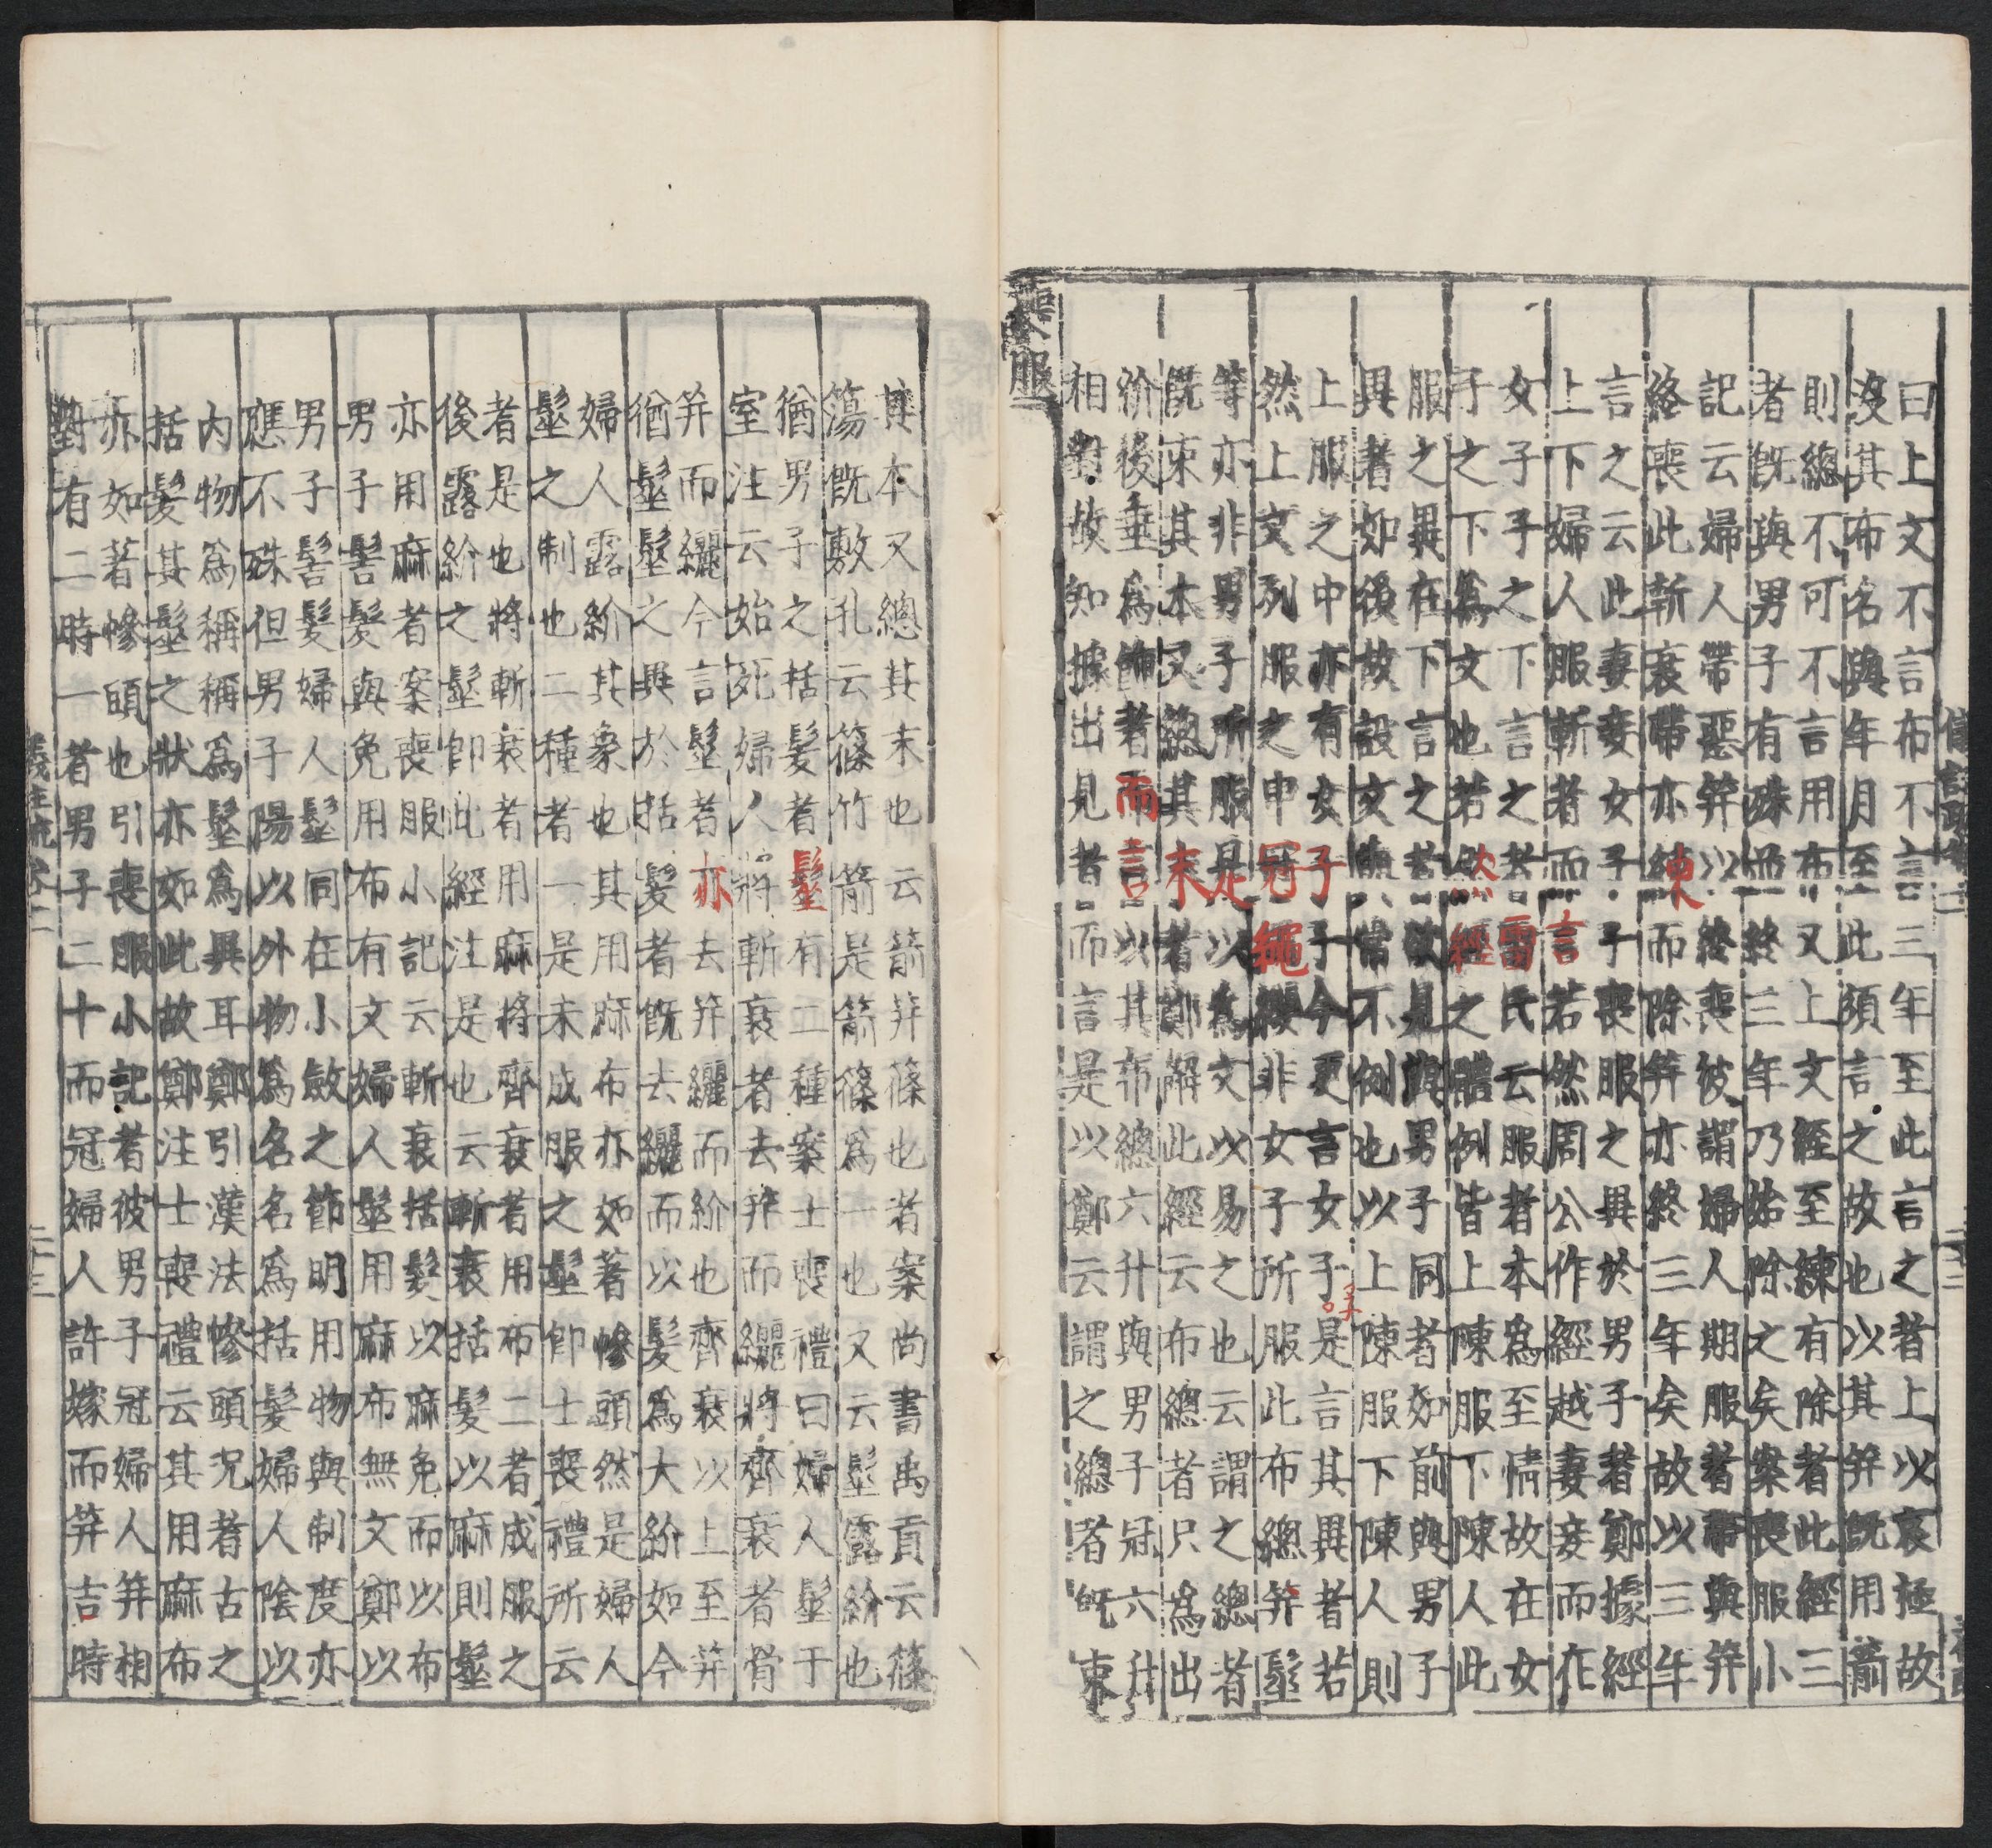 曰上文不言布不言三年至此言之者上以哀極故
沒其布名與年月至此須言之故也以其笄既用箭
則總不可不言用布又上文經至練有除者此經三
者既與男子有殊而終三年乃始除之矣案喪服小
記云婦人帶惡笄以終喪彼謂婦人期服者帶與笄
終喪此斬衰帶亦練而除笄亦終三年矣故以三年
言之云此妻妾女子子喪服之異於男子者鄭據經
上下婦人服斬者而言若然周公作經越妻妾而在
女子子之下言之者雷氏云服者本為至情故在女
子之下為文也若然經之體例皆上陳服下陳人此
服之異在下言之者欲見與男子同者如前與男子
異者如後故設文與常不例也以上陳服下陳人則
上服之中亦有女子子今更言女子是言其異者若
子
然上文列服之中冠繩纓非女子所服此布總笄髽
等亦非男子所服是以為文以易之也云謂之總者
既束其本又總其末者鄭解此經云布總者只為出
紒後垂為飾者而言以其布總六升與男子冠六升
相對故知據出見者而言是以鄭云謂之總者既束
其本又總其末也云箭笄篠也者案尚書禹貢云篠
簜既敷孔云篠竹箭是箭篠為一也又云髽露紒也
猶男子之括髮者髽有二種案士喪禮曰婦人髽于
室注云始死婦人將斬衰者去笄而纚將齊衰者骨
笄而纚今言髽者亦去笄纚而紒也齊衰以上至笄
猶髽髽之異於括髮者既去纚而以髮為大紒如今
婦人露紒其象也其用麻布亦如著幓頭然是婦人
髽之制也二種者一是未成服之髽即士喪禮所云
者是也將斬衰者用麻將齊衰者用布二者成服之
後露紒之髽即此經注是也云斬衰括髮以麻則髽
亦用麻者案喪服小記云斬衰括髮以麻免而以布
男子髻髮與免用布有文婦人髽用麻布無文鄭以
男子髻髮婦人髽同在小斂之節明用物與制度亦
應不殊但男子陽以外物為名名為括髮婦人陰以
內物為稱稱為髽為異耳鄭引漢法幓頭況者古之
括髮其髽之狀亦如此故鄭注士喪禮云其用麻布
亦如著幓頭也引喪服小記者彼男子冠婦人笄相
對有二時一者男子二十而冠婦人許嫁而笄吉時